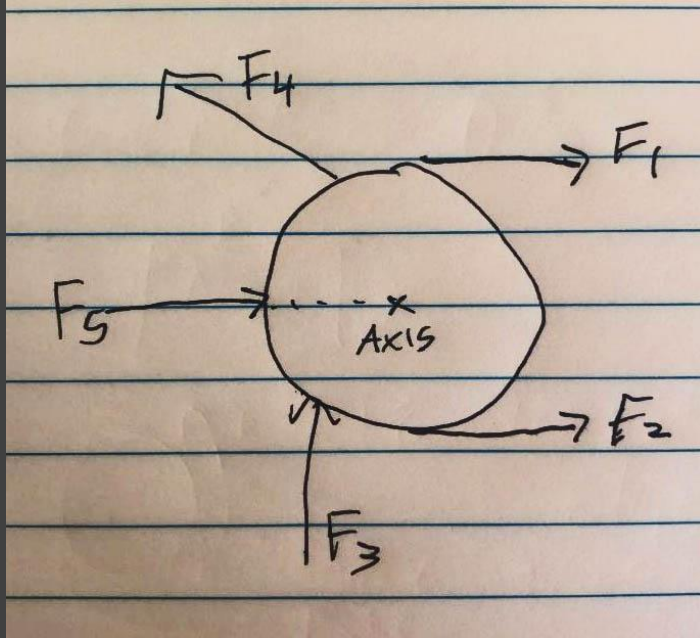 F4
F1
F5
× AXIS
F2
F3